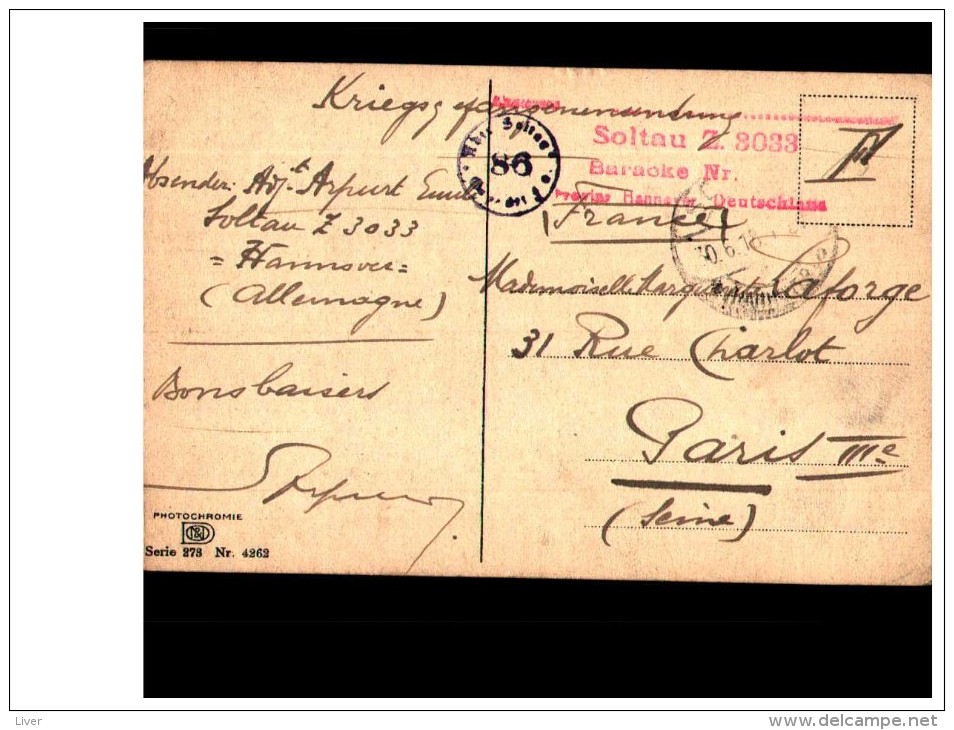 Kriegsgefangenensendung
Soltau Z. 3033
Baracke Nr.
Provinz Hannover Deutschland
86
Absender: Adjt Arpurt Emile
Soltau Z 3033
= Hannover =
(Allemagne)
Bons baisers
(France)
30.6.18
HANNOVER
Mademoiselle Marguerite Laforge
31 Rue Charlot
Paris IIIe
(Seine)
PHOTOCHROMIE
Serie 273 Nr. 4262
Liver
www.delcampe.net